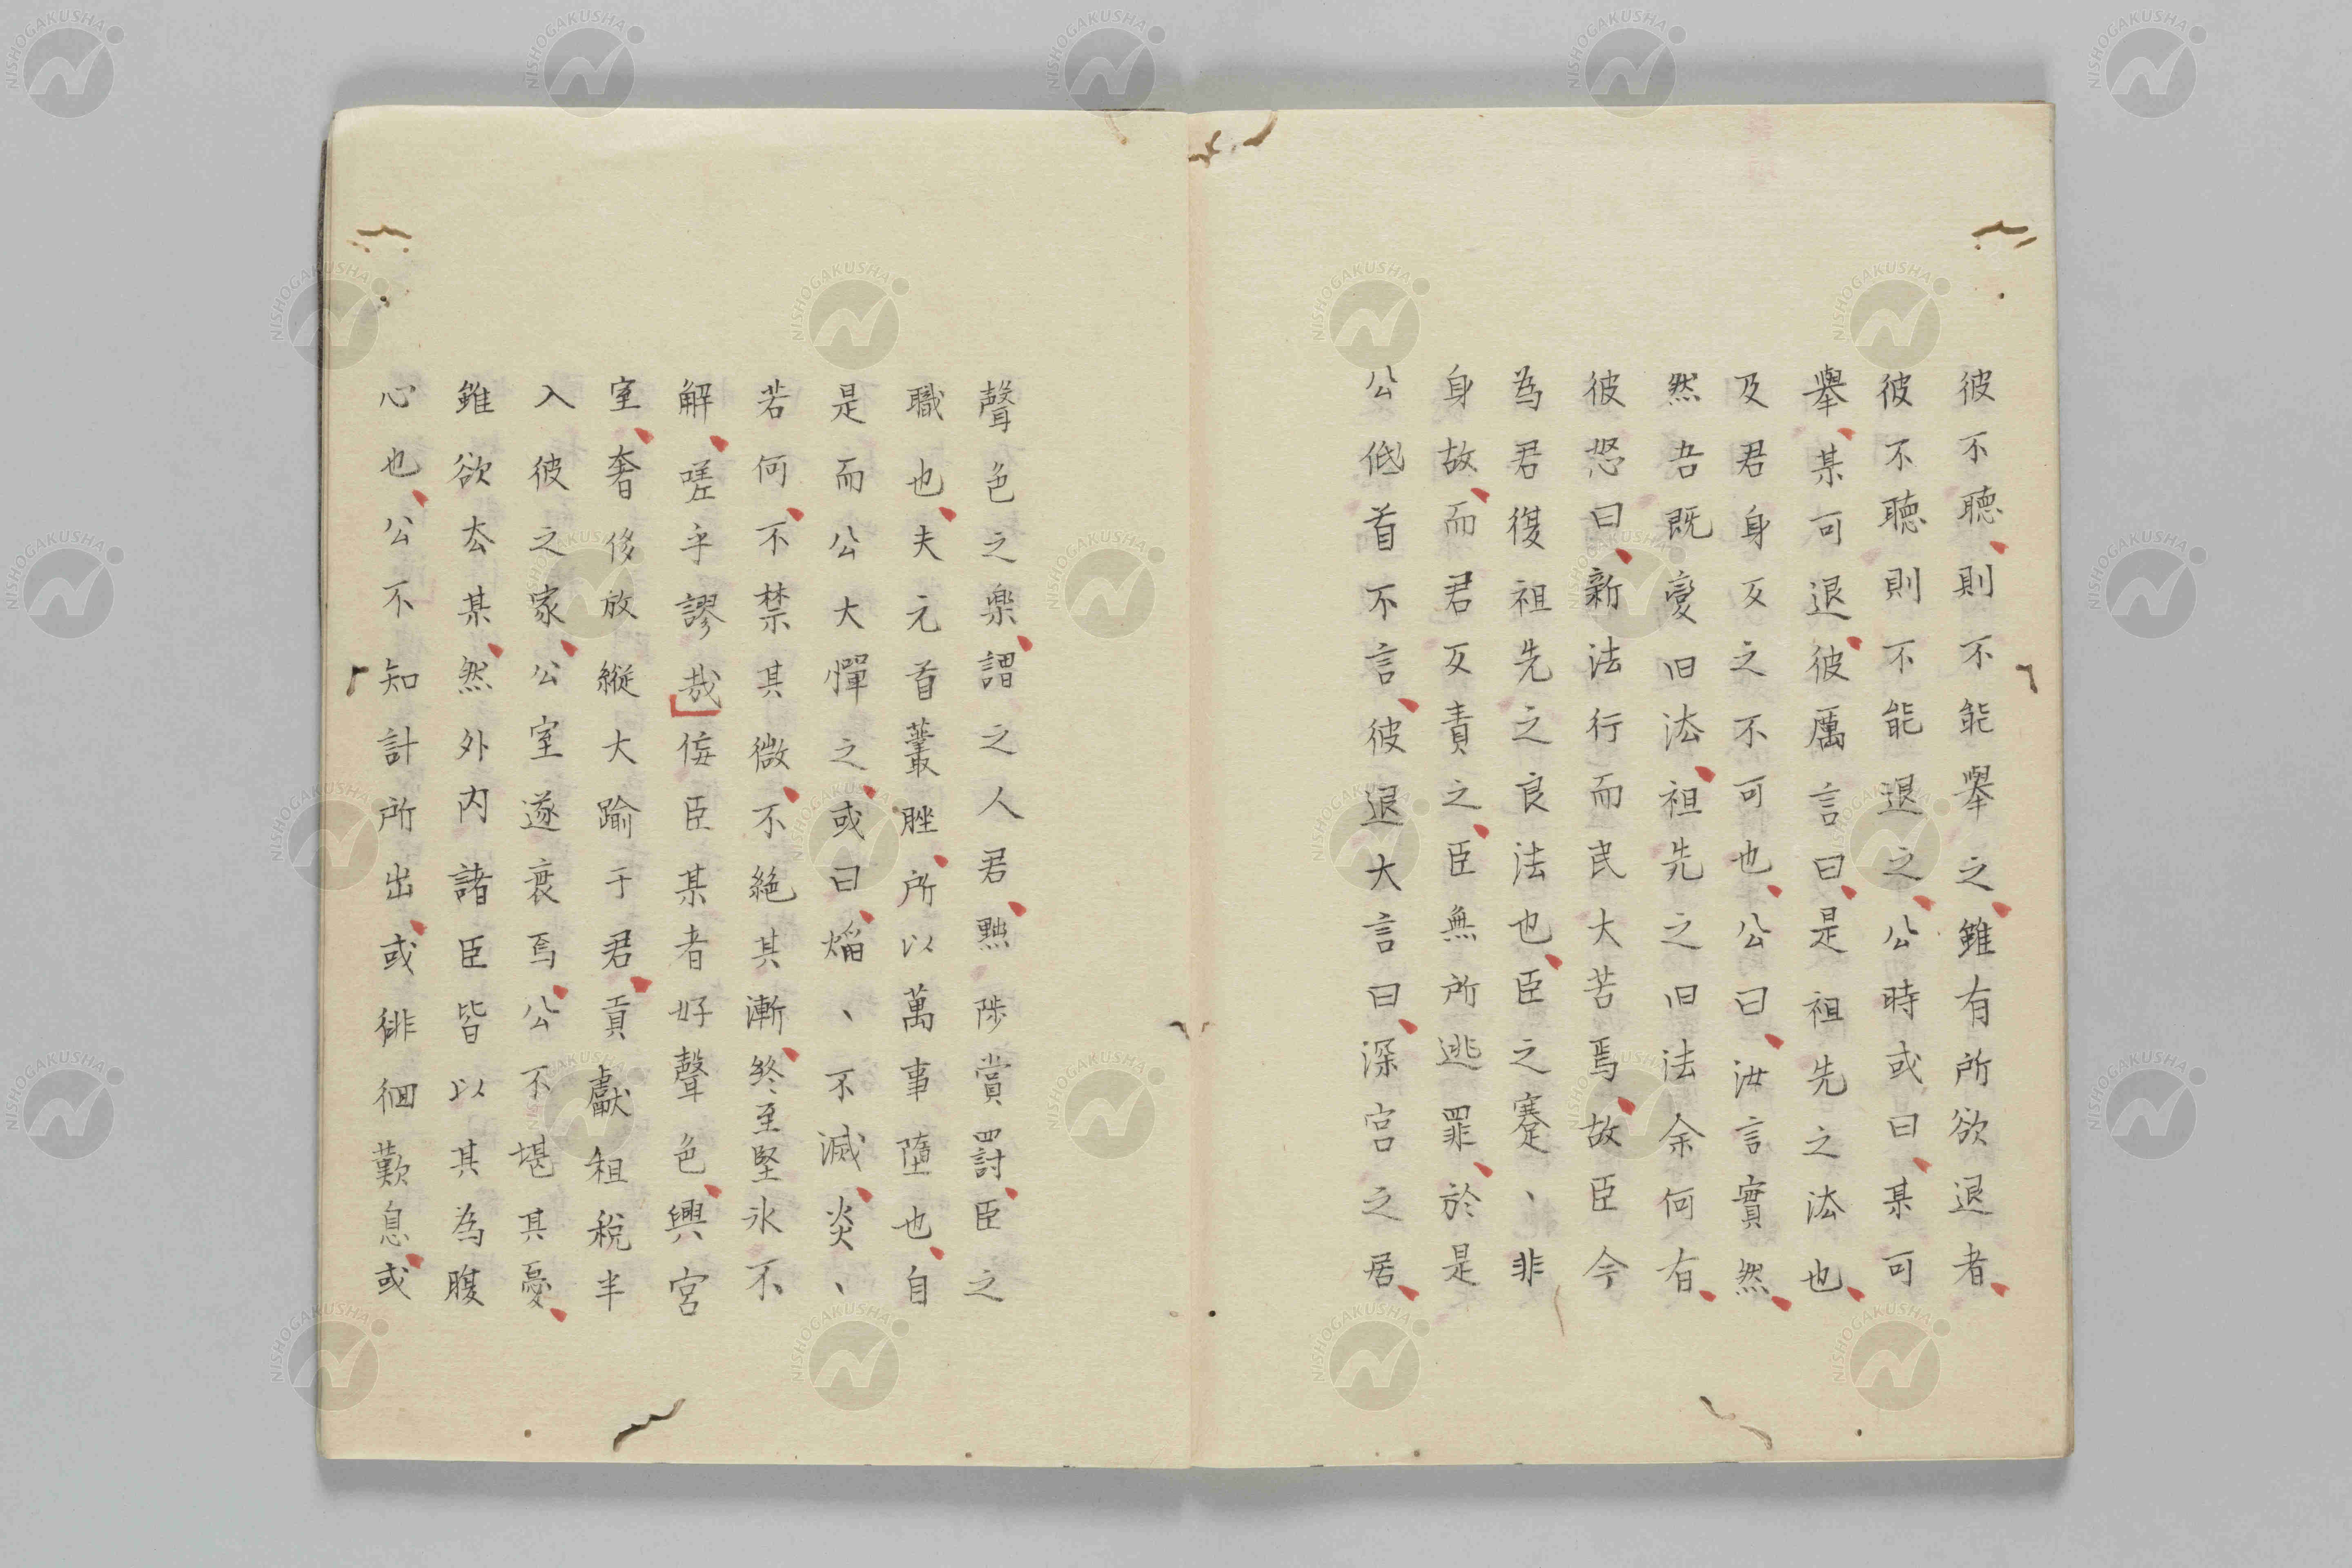 彼不聴則不能舉之雖有所欲退者
彼不聴則不能退之公時或曰某可
舉某可退彼厲言曰是祖先之法也
及君身反之不可也公曰汝言實然
然吾既変旧法祖先之旧法余何有
彼怒曰新法行而民大苦焉故臣今
為君復祖先之良法也臣之蹇、非
身故而君反責之臣無所逃罪於是
公低首不言彼退大言曰深宮之居
聲色之楽謂之人君黜陟賞罰臣之
職也夫元首叢脞所以萬事堕也自
是而公大憚之或曰焔、不滅炎、
若何不禁其微不絶其漸終至堅氷不
解嗟乎謬哉侫臣某者好聲色興宮
室奢侈放縦大踰于君貢獻租税半
入彼之家公室遂衰焉公不堪其憂
雖欲去某然外内諸臣皆以其為腹
心也公不知計所出或徘徊歎息或
NISHOGAKUSHA